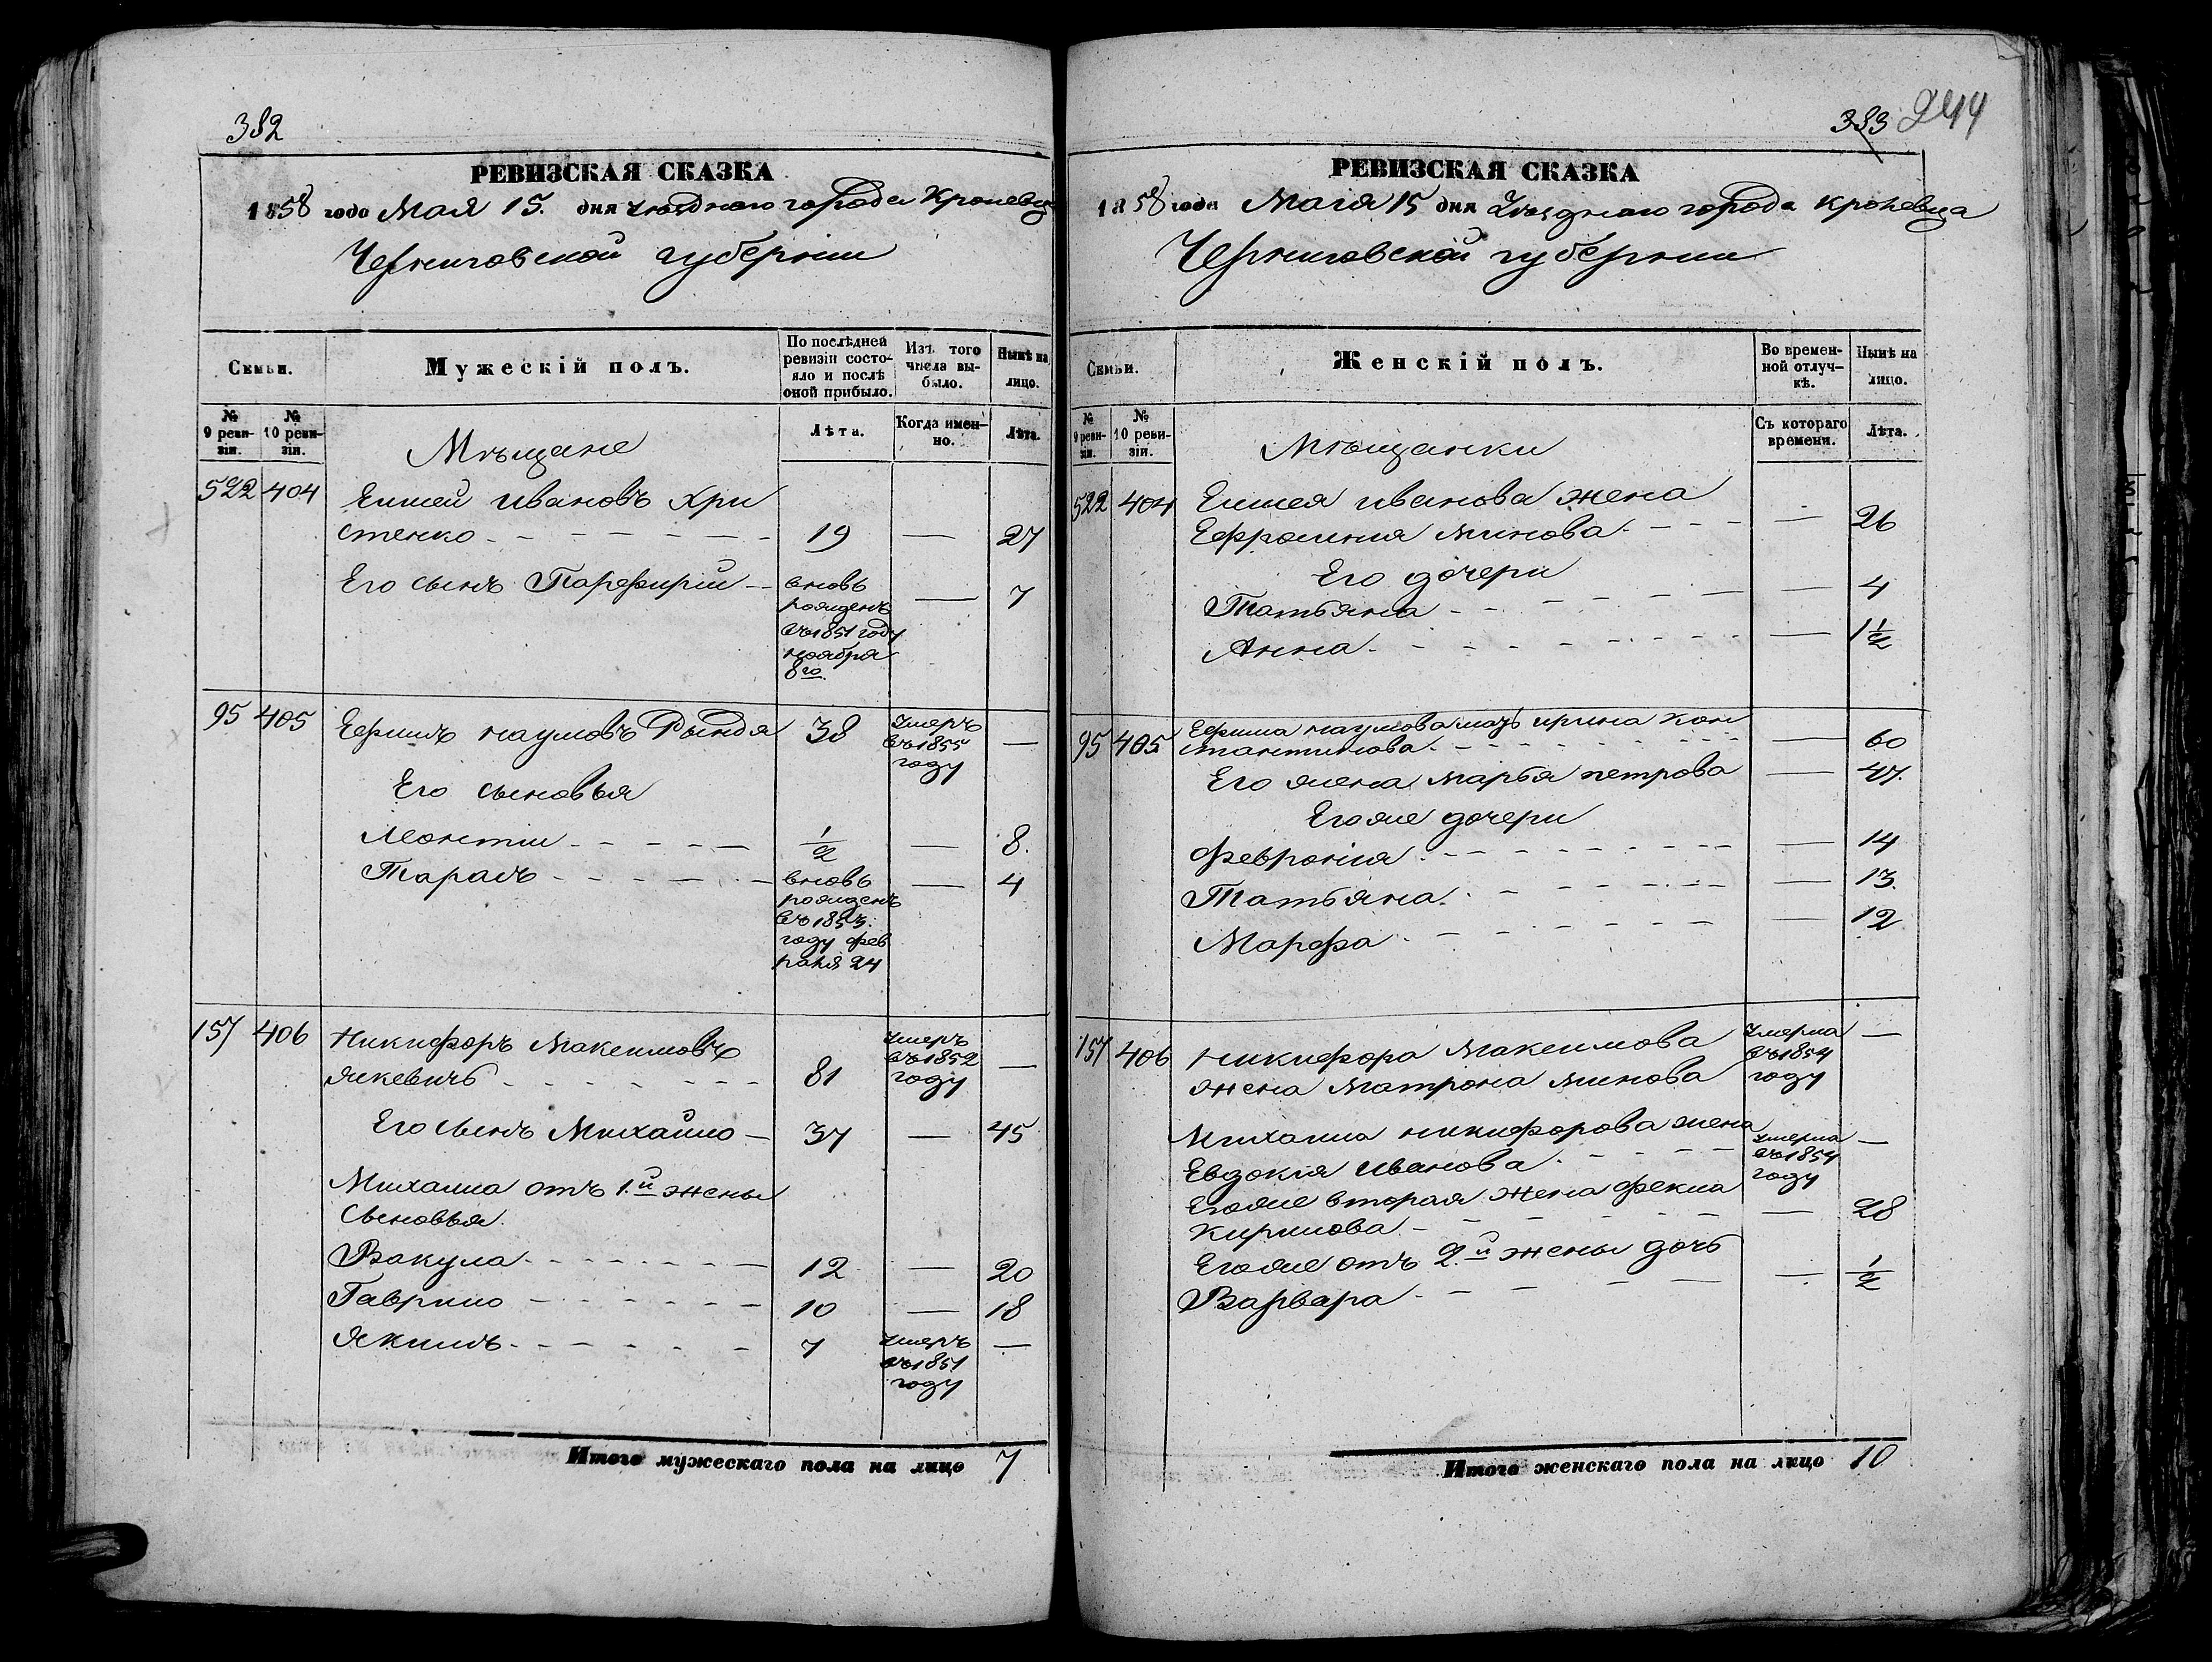 382
РЕВИЗСКАЯ СКАЗКА
1858 года Мая 15. дня уѣзднаго города Кролевца
Черниговской губернiи
Семьи.
Мужескiй полъ.
По послѣдней ревизiи состояло и послѣ оной прибыло.
Изъ того числа выбыло.
Нынѣ на лицо.
№ 9 ревизiи.
№ 10 ревизiи.
Лѣта.
Когда именно.
Лѣта.
Мѣщане
522 404 Елисей Ивановъ Хри
стенко 19 — 27
Его сынъ Парфирiй — вновь — 7
рожденъ
въ 1851 году
ноября
8го.
95 405 Ефимъ Наумовъ Рында 38 умеръ —
въ 1855
году
Его сыновья
Леонтiй 1/2 — 8.
Тарасъ вновь — 4
рожденъ
въ
году фев
раля 24
157 406 Никифоръ Максимовъ умеръ
въ 1852
Яцкевичъ 81 году —
Его сынъ Михайло — 37 — 45
Михаила отъ 1.й жены
сыновья.
Вакула 12 — 20
Гаврило 10 — 18
Якимъ 7 умеръ —
въ 1851
году
Итого мужескаго пола на лицо 7
383 244
РЕВИЗСКАЯ СКАЗКА
1858 года Маiя 15 дня Уѣзднаго города Кролевца
Черниговской губернiи
Семьи.
Женскiй полъ.
Во временной отлучкѣ.
Нынѣ на лицо.
№ 9 ревизiи.
№ 10 ревизiи.
Съ котораго времени.
Лѣта.
Мѣщанки
522 404 Елисея Иванова жена
Ефросинiя Минова — 26
Его дочери
Татьяна — 4
Анна — 1 1/2
95 405 Ефима Наумова мать Ирина Кон
стантинова — 60
Его жена Марья Петрова — 47.
Егоже дочери
Феврониiя — 14
Татьяна — 13.
Марфа — 12
157 406 Никифора Максимова умерла —
въ 1854
жена Матрона Минова году
Михаила Никифорова жена
Евдокiя Иванова умерла —
въ 1854
году
Егоже вторая жена Фекла
Кирилова — 28
Егоже отъ 2.й жены дочь
Варвара — 1/2
Итого женскаго пола на лицо 10